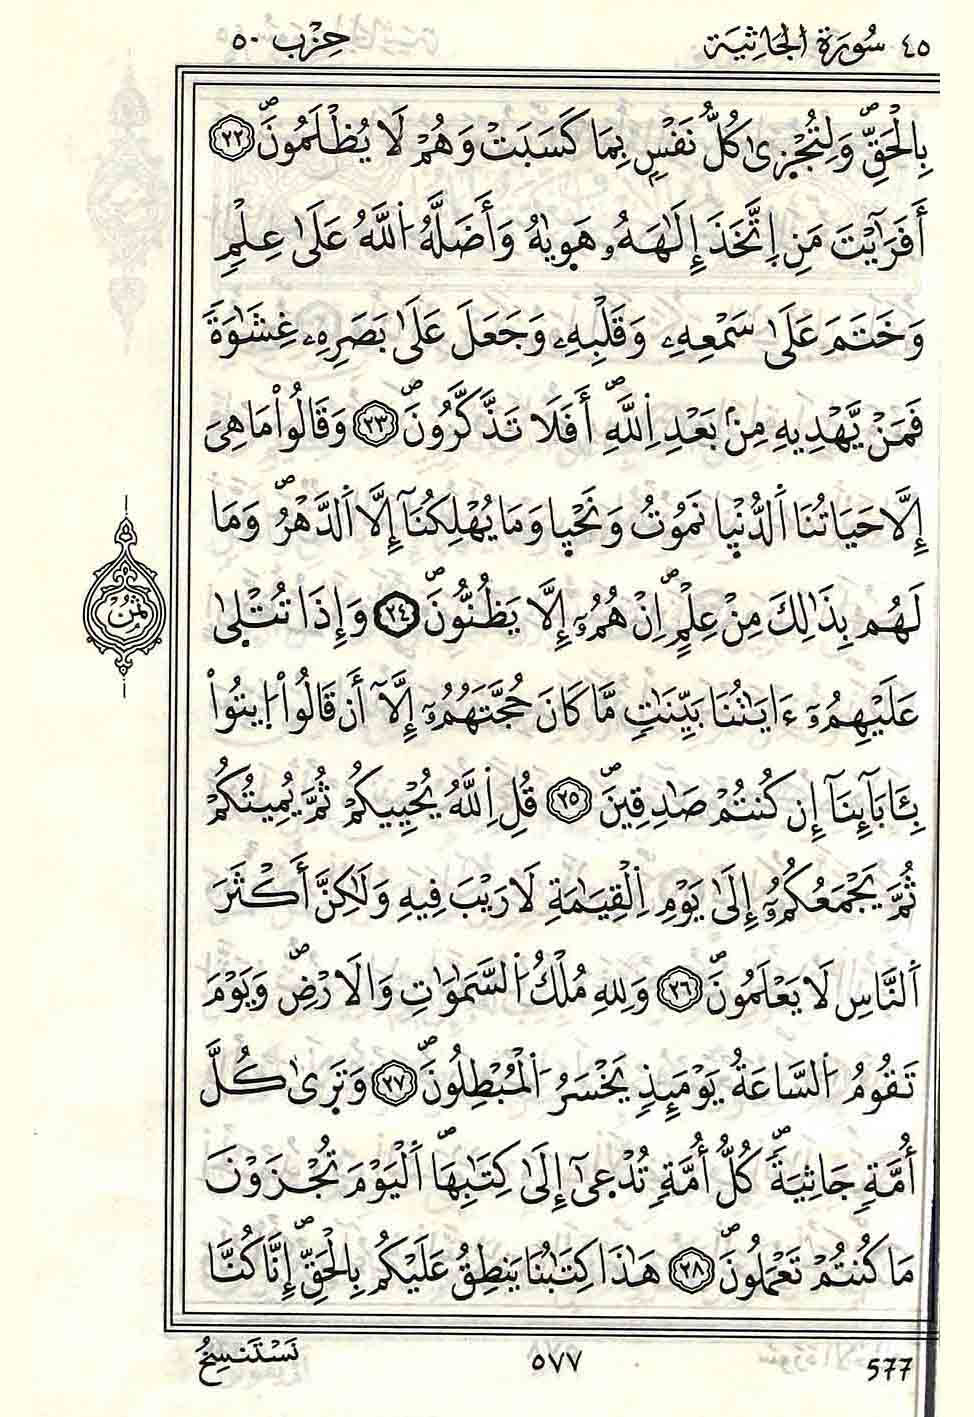 ٤٥ سُورَةُ الْجَاثِيَةِ حِزْب ٥٠
بِالْحَقِّۖ وَلِتُجْز۪ىٰ كُلُّ نَفْسِۢ بِمَا كَسَبَتْ وَهُمْ لَا يُظْلَمُونَۖ ٢٢
أَفَرَٰٓيْتَ مَنِ اِ۪تَّخَذَ إِلَٰهَهُۥ هَو۪يٰهُ وَأَضَلَّهُ اُ۬للَّهُ عَلَىٰ عِلْمٖ
وَخَتَمَ عَلَىٰ سَمْعِهِۦ وَقَلْبِهِۦ وَجَعَلَ عَلَىٰ بَصَرِهِۦ غِشَٰوَةٗ
فَمَنْ يَّهْدِيهِ مِنۢ بَعْدِ اِ۬للَّهِۖ أَفَلَا تَذَّكَّرُونَۖ ٢٣ وَقَالُواْ مَا هِىَ
إِلَّا حَيَاتُنَا اَ۬لدُّنْي۪ا نَمُوتُ وَنَحْي۪ا وَمَا يُهْلِكُنَآ إِلَّا اَ۬لدَّهْرُۖ وَمَا
لَهُم بِذَٰلِكَ مِنْ عِلْمٍۖ اِنْ هُمُۥٓ إِلَّا يَظُنُّونَۖ ٢٤ وَإِذَا تُتْل۪ىٰ
عَلَيْهِمُۥٓ ءَايَٰتُنَا بَيِّنَٰتٖ مَّا كَانَ حُجَّتَهُمُۥٓ إِلَّآ أَن قَالُواْ اُ۪يتُواْ
بِـَٔابَآئِنَآ إِن كُنتُمْ صَٰدِقِينَۖ ٢٥ قُلِ اِ۬للَّهُ يُحْيِيكُمْ ثُمَّ يُمِيتُكُمْ
ثُمَّ يَجْمَعُكُمُۥٓ إِلَىٰ يَوْمِ اِ۬لْقِيَٰمَةِ لَا رَيْبَ فِيهِ وَلَٰكِنَّ أَكْثَرَ
اَ۬لنَّاسِ لَا يَعْلَمُونَۖ ٢٦ وَلِلهِ مُلْكُ اُ۬لسَّمَٰوَٰتِ وَالَارْضِۖ وَيَوْمَ
تَقُومُ اُ۬لسَّاعَةُ يَوْمَئِذٖ يَخْسَرُ اُ۬لْمُبْطِلُونَۖ ٢٧ وَتَر۪ىٰ كُلَّ
أُمَّةٖ جَاثِيَةٗۖ كُلُّ أُمَّةٖ تُدْع۪ىٰٓ إِلَىٰ كِتَٰبِهَاۖ اَ۬لْيَوْمَ تُجْزَوْنَ
مَا كُنتُمْ تَعْمَلُونَۖ ٢٨ هَٰذَا كِتَٰبُنَا يَنطِقُ عَلَيْكُم بِالْحَقِّۖ إِنَّا كُنَّا
ثُمُنْ
نَسْتَنسِخُ ٥٧٧ 577